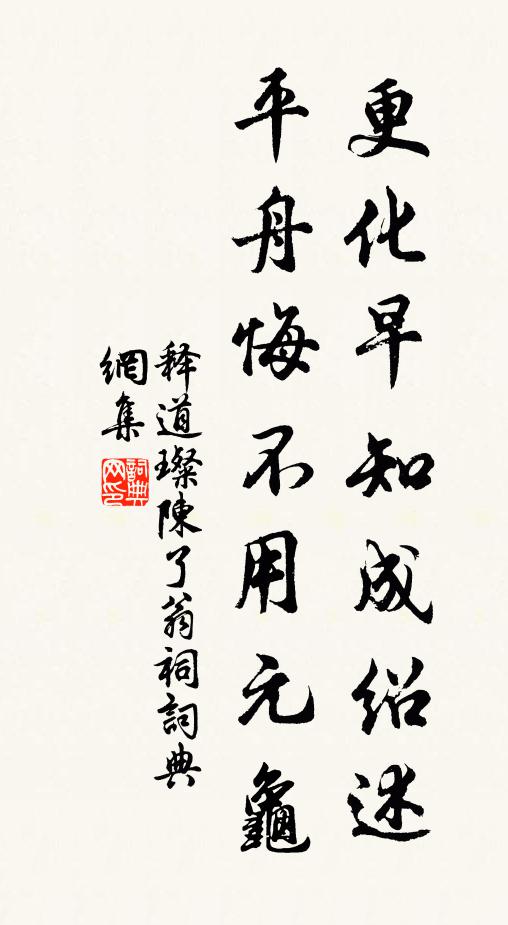 更化早知成绍述
平舟悔不用元龜
释道璨陳了翁祠詞典
網集
詞典网印